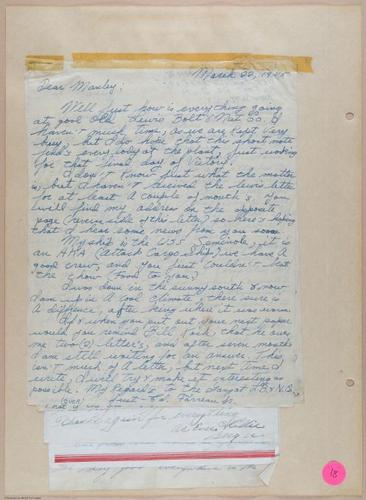 March 22, 1945
Dear Maxley:
Well just how is everything going
at good Old Lewis Bolt & Nut Co. I
haven't much time, as we are kept very
busy, but I do hope that this short note
finds everybody at the plant, just working
for that final day of Victory.
I don't know just what the matter
is, but I haven't received the lewis letter
for at least a couple of months. You
will find my address on the opposite
page (reverse side of this letter) so here's hoping
that I hear some news from you soon.
My ship is the USS Seminole, it is
an AKA (attack Cargo ship) we have a
good crew, and you just couldn't beat
the chow (Food to you)
I was down in the sunny south & now
I am up in a cool climate, there sure is
a difference, after being where it was warm.
If & when you put out your next paper
would you remind Bill that he owes
me two (2) letter's, and after seven months
I am still waiting for an answer. This
isn't much of a letter, but next time I
write, I will try & make it interesting as
possible. My Regards to the Gang at L.B.&N.Co.
(over) Just "Ed" Farreau Jr.
Thanks again for everything
As Ever